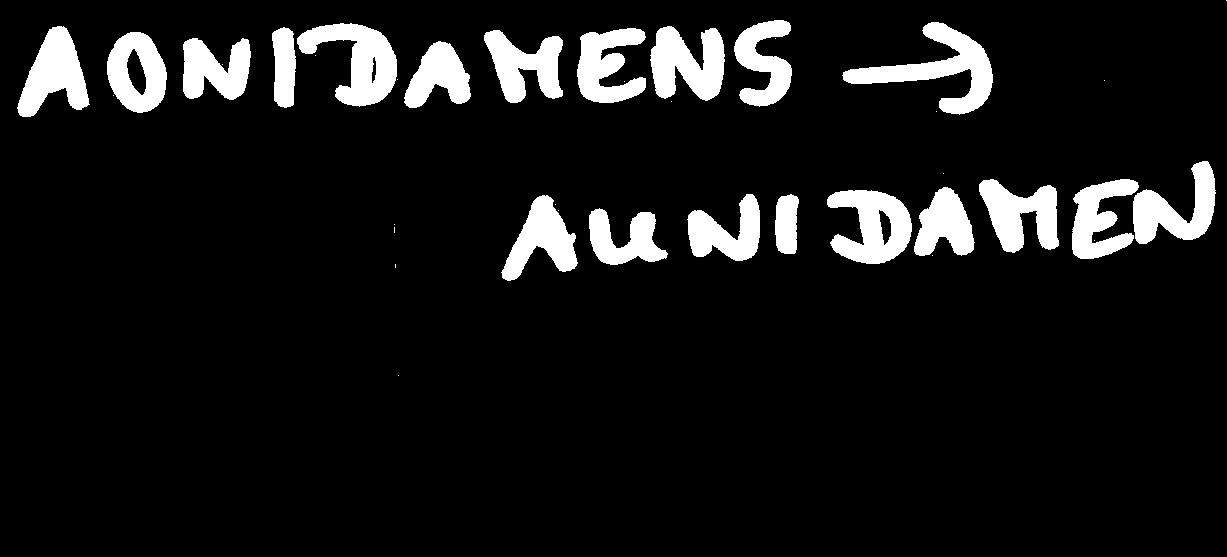 AONIDAMENS →
AUNIDAMEN